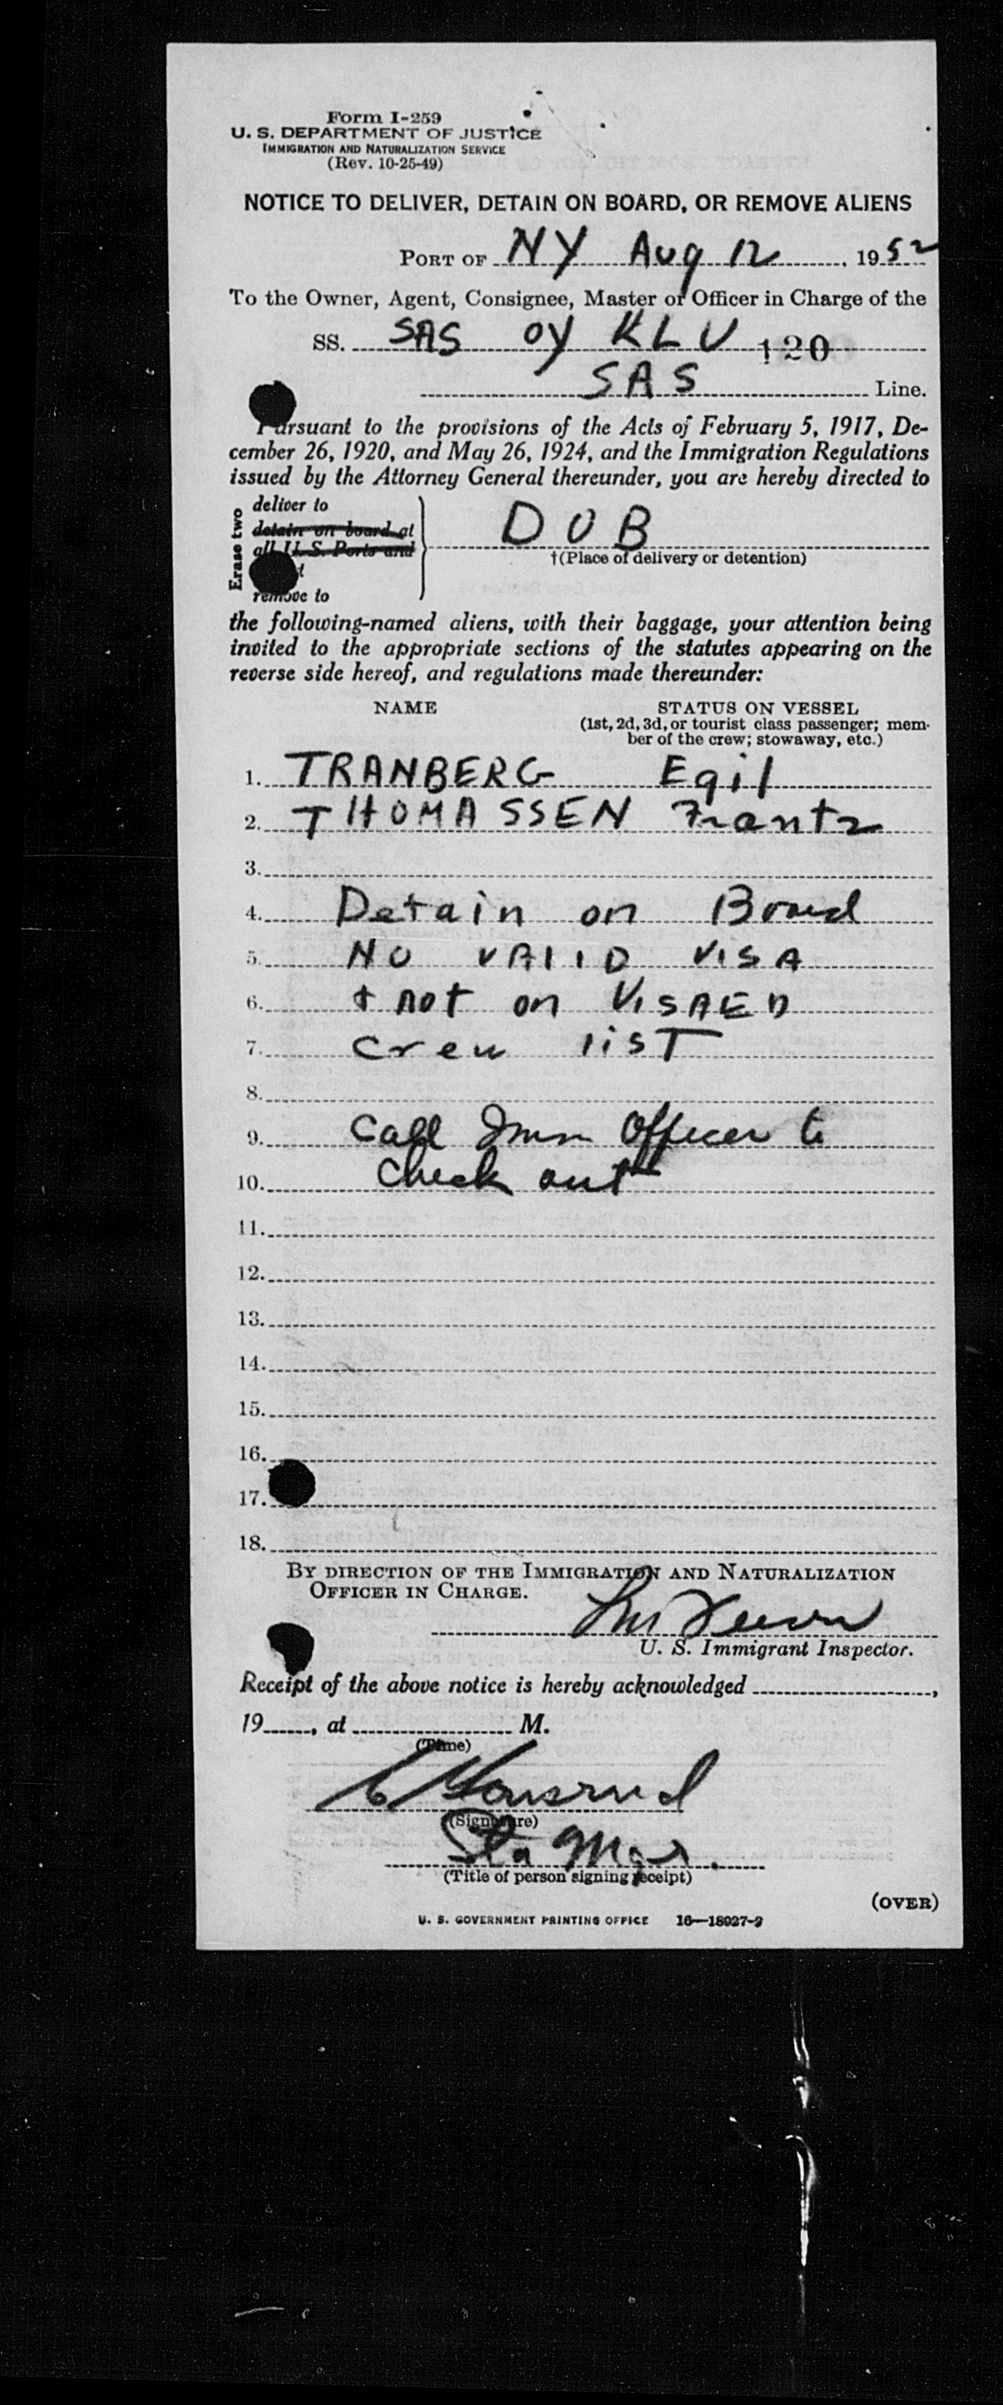 Form I-259
U. S. DEPARTMENT OF JUSTICE
IMMIGRATION AND NATURALIZATION SERVICE
(Rev. 10-25-49)
NOTICE TO DELIVER, DETAIN ON BOARD, OR REMOVE ALIENS
PORT OF NY Aug 12, 1952
To the Owner, Agent, Consignee, Master or Officer in Charge of the
SS. SAS OY KLU 120
SAS Line.
Pursuant to the provisions of the Acts of February 5, 1917, De-
cember 26, 1920, and May 26, 1924, and the Immigration Regulations
issued by the Attorney General thereunder, you are hereby directed to
Erase two
deliver to
detain on board at
all U. S. Ports and
remove to
DOB
†(Place of delivery or detention)
the following-named aliens, with their baggage, your attention being
invited to the appropriate sections of the statutes appearing on the
reverse side hereof, and regulations made thereunder:
NAME STATUS ON VESSEL
(1st, 2d, 3d, or tourist class passenger; mem-
ber of the crew; stowaway, etc.)
1. TRANBERG Egil
2. THOMASSEN Frantz
3.
4. Detain on Board
5. NO VALID VISA
6. + not on VISAED
7. crew list
8.
9. Call Imm Officer to
10. check out
11.
12.
13.
14.
15.
16.
17.
18.
BY DIRECTION OF THE IMMIGRATION AND NATURALIZATION
OFFICER IN CHARGE.
U. S. Immigrant Inspector.
Receipt of the above notice is hereby acknowledged ,
19 , at M.
(Time)
(Signature)
Sta Mgr.
(Title of person signing receipt)
(OVER)
U. S. GOVERNMENT PRINTING OFFICE 16—18027-2